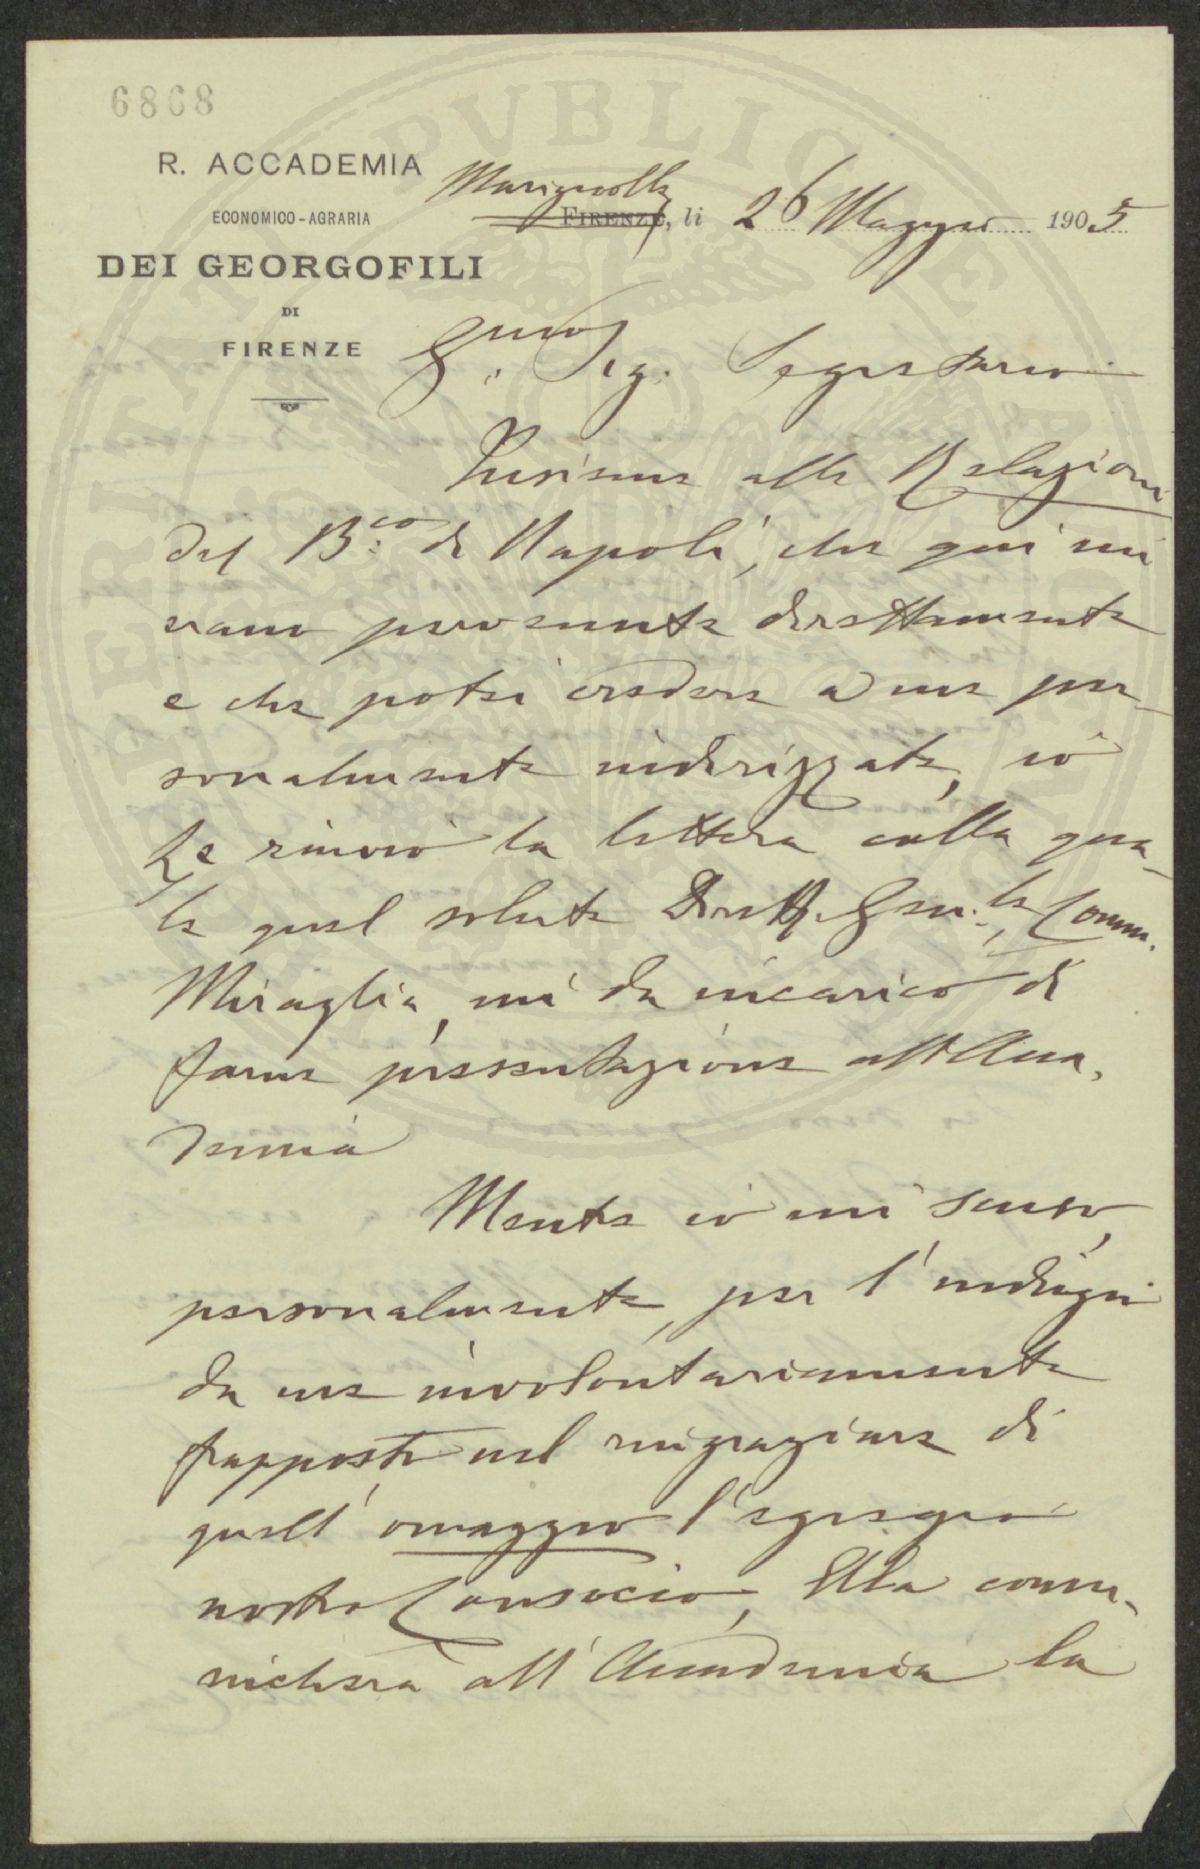 6868
R. ACCADEMIA
ECONOMICO-AGRARIA
DEI GEORGOFILI
DI
FIRENZE
Marignolle
FIRENZE, li 26 Maggio 1905
G.mo Sig. Segretario
Insieme alle Relazioni
del B.co di Napoli, che qui mi
erano pervenute direttamente
e che potei credere a me per-
sonalmente indirizzate, io
Le rinvio la lettera colla qua-
le quel solerte Dirett. Gen.le, Comm.
Miraglia, mi da incarico di
farne presentazione all'Acca-
demia
Mentre io mi scuso,
personalmente, per l'indugio
da me involontariamente
frapposto nel ringraziare di
quell'omaggio l'egregio
nostro Consocio, Ella comu-
nicherà all'Accademia la
PERITAT PVBLICAE